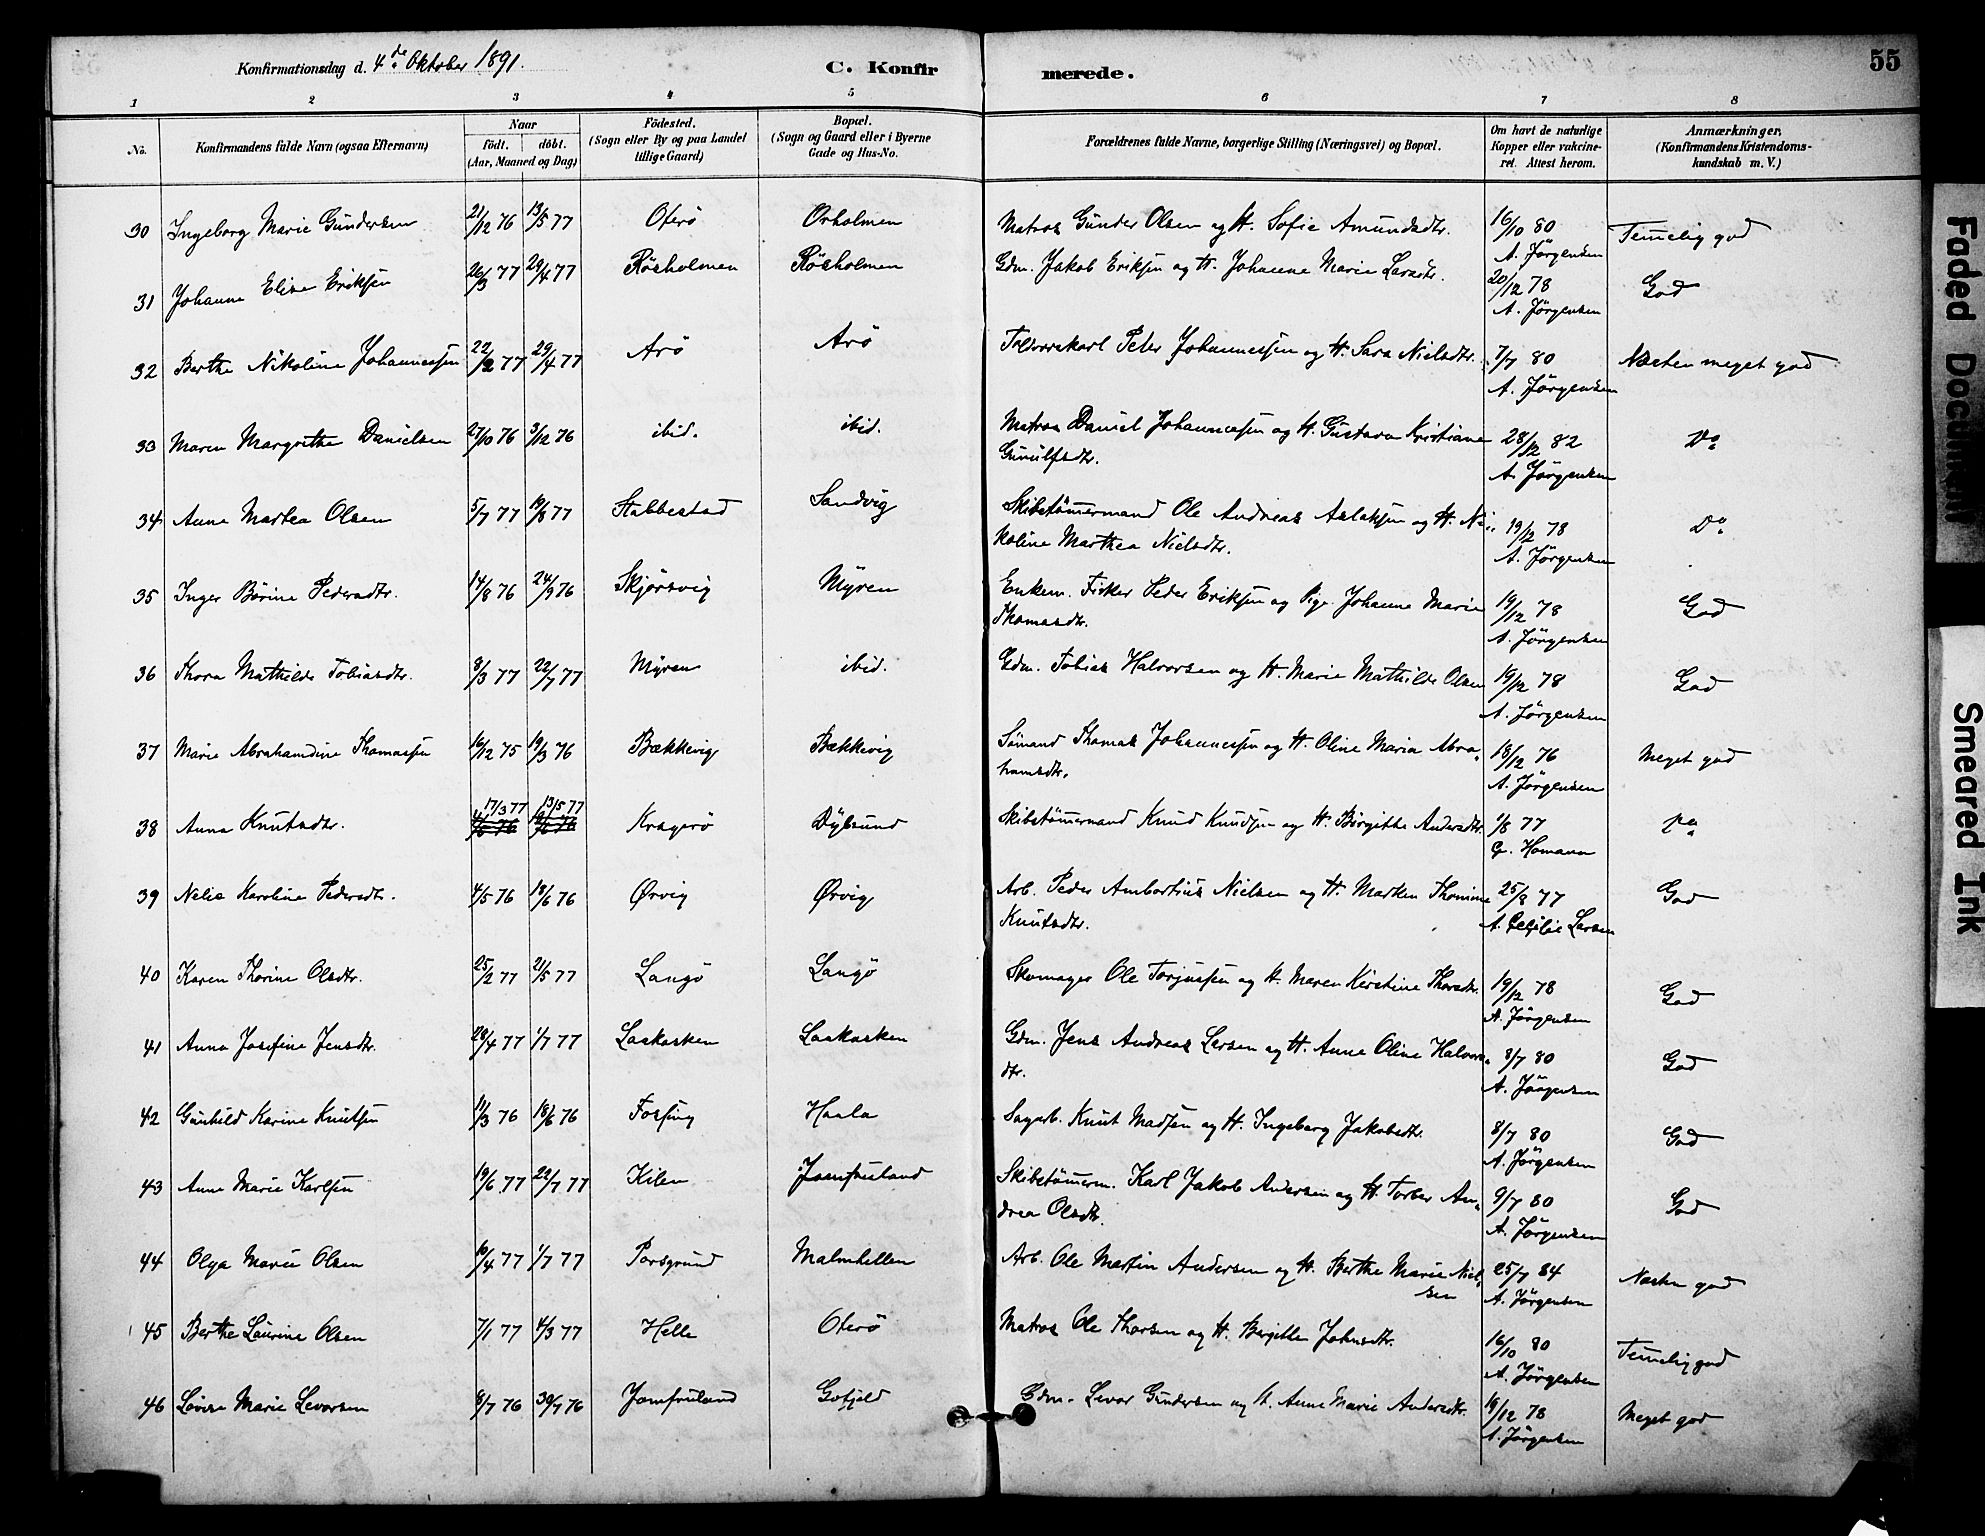 Konfirmationsdag d. 4de Oktober 1891.
C. Konfirmerede.
55
1 2 3 4 5 6 7 8
No.
Konfirmandens fulde Navn (ogsaa Efternavn)
Naar
födt. döbt.
(Aar, Maaned og Dag)
Födested.
(Sogn eller By og paa Landet
tillige Gaard)
Bopæl.
(Sogn og Gaard eller i Byerne
Gade og Hus-No.
Forældrenes fulde Navne, borgerlige Stilling (Næringsvei) og Bopæl.
Om havt de naturlige
Kopper eller vakcine-
ret. Attest herom.
Anmærkninger.
(Konfirmandens Kristendoms-
kundskab m. V.)
30 Ingeborg Marie Gundersen 21/12 76 13/5 77 Oterö Orholmen Matros Gunder Olsen og H. Sofie Amundsdtr. 16/10 80 Temelig god
A. Jörgensen
31 Johanne Elise Eriksen 26/3 77 29/4 77 Rösholmen Rösholmen Gdm. Jakob Eriksen og H. Johanne Marie Larsdtr. 20/12 78 God
A. Jörgensen
32 Berthe Nikoline Johannessen 22/2 77 29/4 77 Arö Arö Peter Johannessen og H. Sara Nielsdtr. 7/7 80 Næsten meget god
A. Jörgensen
33 Maren Margrethe Danielsen 27/10 76 3/12 76 ibid. ibid. Matros Daniel Johannessen og H. Gustava Kristiane 28/12 82 Do
Gunulfsdtr.
A. Jörgensen
34 Anne Martea Olsen 5/7 77 19/8 77 Stabbestad Sandvig Skibstömermand Ole Andreas Aslaksen og H. Ni- 19/12 78 Do
koline Marthea Nielsdtr.
A. Jörgensen
35 Inger Börine Pedersdtr. 14/8 76 24/9 76 Skjörsvig Myren Enkem. Fisker Peder Eriksen og Pige Johanne Marie 19/12 78 God
Thomasdtr.
A. Jörgensen
36 Thora Mathilde Tobiasdtr. 8/3 77 22/7 77 Myren ibid. Gdm. Tobias Halvorsen og H. Marie Mathilde Olsen 19/12 78 God
A. Jörgensen
37 Marie Abrahamdine Thomassen 16/12 75 19/3 76 Bækkevig Bækkevig Sömand Thomas Johannessen og H. Oline Maria Abra- 18/12 76 Meget god
hamsdtr.
A. Jörgensen
17/3 77 13/5 77
38 Anna Knutsdtr. Kragerö Dybsund Skibstömermand Knud Knudsen og H. Birgithe Andersdtr. 1/8 77 Do
G. Homann
39 Nelie Karoline Pedersdtr. 4/5 76 18/6 76 Ørvig Ørvig Arb. Peder Ambortius Nielsen og H. Marken Thomine 25/8 77 God
Knutsdtr.
A. Larsen
40 Karen Thorine Olsdtr. 25/2 77 21/5 77 Langö Langö Skomager Ole Torjussen og H. Maren Kirstine Thorsdtr. 19/12 78 God
A. Jörgensen
41 Anna Josefine Jensdtr. 28/4 77 1/7 77 Laakasken Laakasken Gdm. Jens Andreas Larsen og H. Anne Oline Halvors- 8/7 80 God
dtr.
A. Jörgensen
42 Gunhild Karine Knutsen 11/3 76 18/6 76 Fossing Haala Sagarb. Knut Madsen og H. Ingeborg Jakobsdtr. 8/7 80 God
A. Jörgensen
43 Anne Marie Karlsen 19/6 77 22/7 77 Kilen Jomfruland Skibstömerm. Karl Jakob Andersen og H. Torber An- 9/7 80 God
drea Olsdtr.
A. Jörgensen
44 Olga Marie Olsen 10/4 77 1/7 77 Porsgrund Malmhellen Arb. Ole Martin Andersen og H. Berthe Marie Niel- 25/7 84 Næsten god
sen
A. Jörgensen
45 Berthe Laurine Olsen 7/1 77 4/3 77 Helle Oterö Matros Ole Thorsen og H. Bergitte Johnsdtr. 16/10 80 Temelig god
A. Jörgensen
46 Lovise Marie Levorsen 8/7 76 30/7 76 Jomfruland Gofjeld Gdm. Levor Gundersen og H. Anne Marie Andersdtr. 19/12 78 Meget god
A. Jörgensen
Faded Document
Smeared Ink